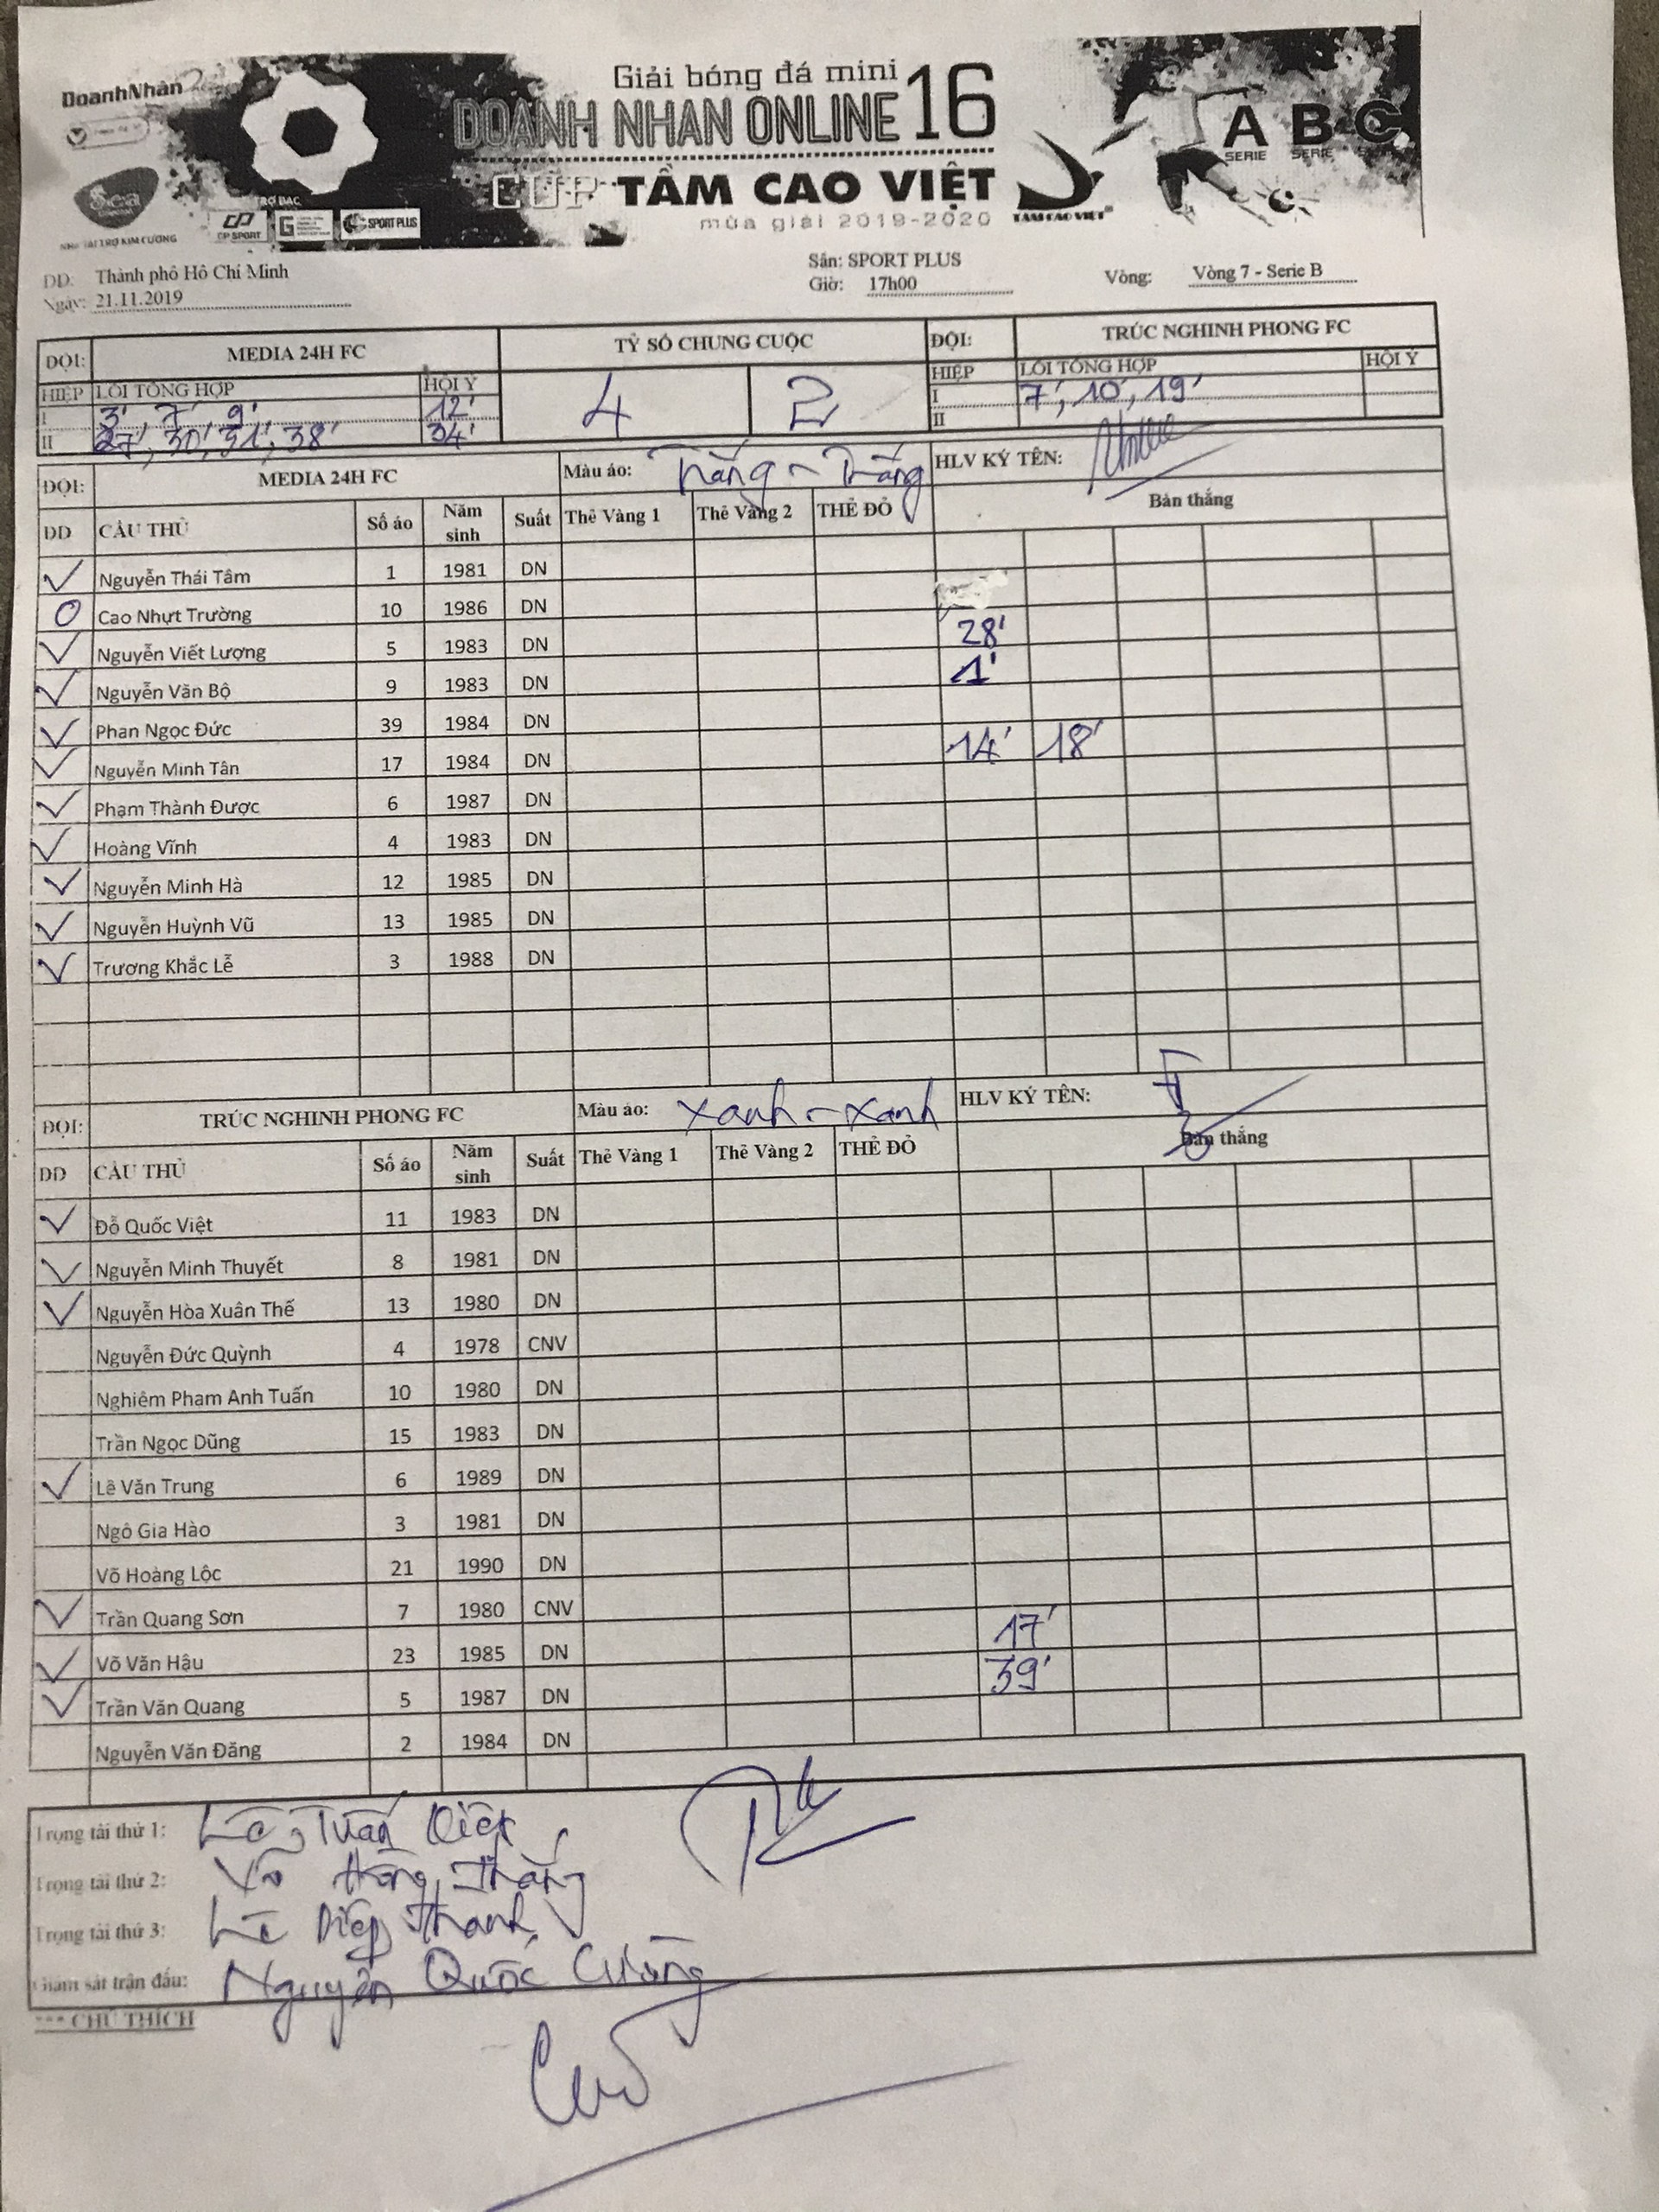 DoanhNhân
Giải bóng đá mini
DOANH NHAN ONLINE 16
CUP TẦM CAO VIỆT
mùa giải 2019-2020
A B C
SERIE SERIE
Seal
NHÀ TÀI TRỢ KIM CƯƠNG
CP SPORT
SPORT PLUS
TAM CAO VIET
ĐĐ: Thành phố Hồ Chí Minh
Sân: SPORT PLUS
Ngày: 21.11.2019
Giờ: 17h00
Vòng: Vòng 7 - Serie B
ĐỘI: MEDIA 24H FC TỶ SỐ CHUNG CUỘC ĐỘI: TRÚC NGHINH PHONG FC
HIỆP LỖI TỔNG HỢP HỘI Ý 4 2 HIỆP LỖI TỔNG HỢP HỘI Ý
I 3', 7', 9' 12' I 7', 10', 19'
II 27', 30', 31', 38' 34' II
ĐỘI: MEDIA 24H FC Màu áo: Trắng - Trắng HLV KÝ TÊN:
ĐD CẦU THỦ Số áo Năm sinh Suất Thẻ Vàng 1 Thẻ Vàng 2 THẺ ĐỎ Bàn thắng
✓ Nguyễn Thái Tâm 1 1981 DN
O Cao Nhựt Trường 10 1986 DN
✓ Nguyễn Viết Lượng 5 1983 DN 28'
✓ Nguyễn Văn Bộ 9 1983 DN 1'
✓ Phan Ngọc Đức 39 1984 DN
✓ Nguyễn Minh Tân 17 1984 DN 14' 18'
✓ Phạm Thành Được 6 1987 DN
✓ Hoàng Vĩnh 4 1983 DN
✓ Nguyễn Minh Hà 12 1985 DN
✓ Nguyễn Huỳnh Vũ 13 1985 DN
✓ Trương Khắc Lễ 3 1988 DN
ĐỘI: TRÚC NGHINH PHONG FC Màu áo: Xanh - Xanh HLV KÝ TÊN:
ĐD CẦU THỦ Số áo Năm sinh Suất Thẻ Vàng 1 Thẻ Vàng 2 THẺ ĐỎ Bàn thắng
✓ Đỗ Quốc Việt 11 1983 DN
✓ Nguyễn Minh Thuyết 8 1981 DN
✓ Nguyễn Hòa Xuân Thế 13 1980 DN
Nguyễn Đức Quỳnh 4 1978 CNV
Nghiêm Phạm Anh Tuấn 10 1980 DN
Trần Ngọc Dũng 15 1983 DN
✓ Lê Văn Trung 6 1989 DN
Ngô Gia Hào 3 1981 DN
Võ Hoàng Lộc 21 1990 DN
✓ Trần Quang Sơn 7 1980 CNV 17'
✓ Võ Văn Hậu 23 1985 DN 39'
✓ Trần Văn Quang 5 1987 DN
Nguyễn Văn Đăng 2 1984 DN
Trọng tài thứ 1: Lê Tuấn
Trọng tài thứ 2: Võ Hồng Thắng
Trọng tài thứ 3: Lê Diệp Thanh
Giám sát trận đấu: Nguyễn Quốc Cường
*** CHÚ THÍCH